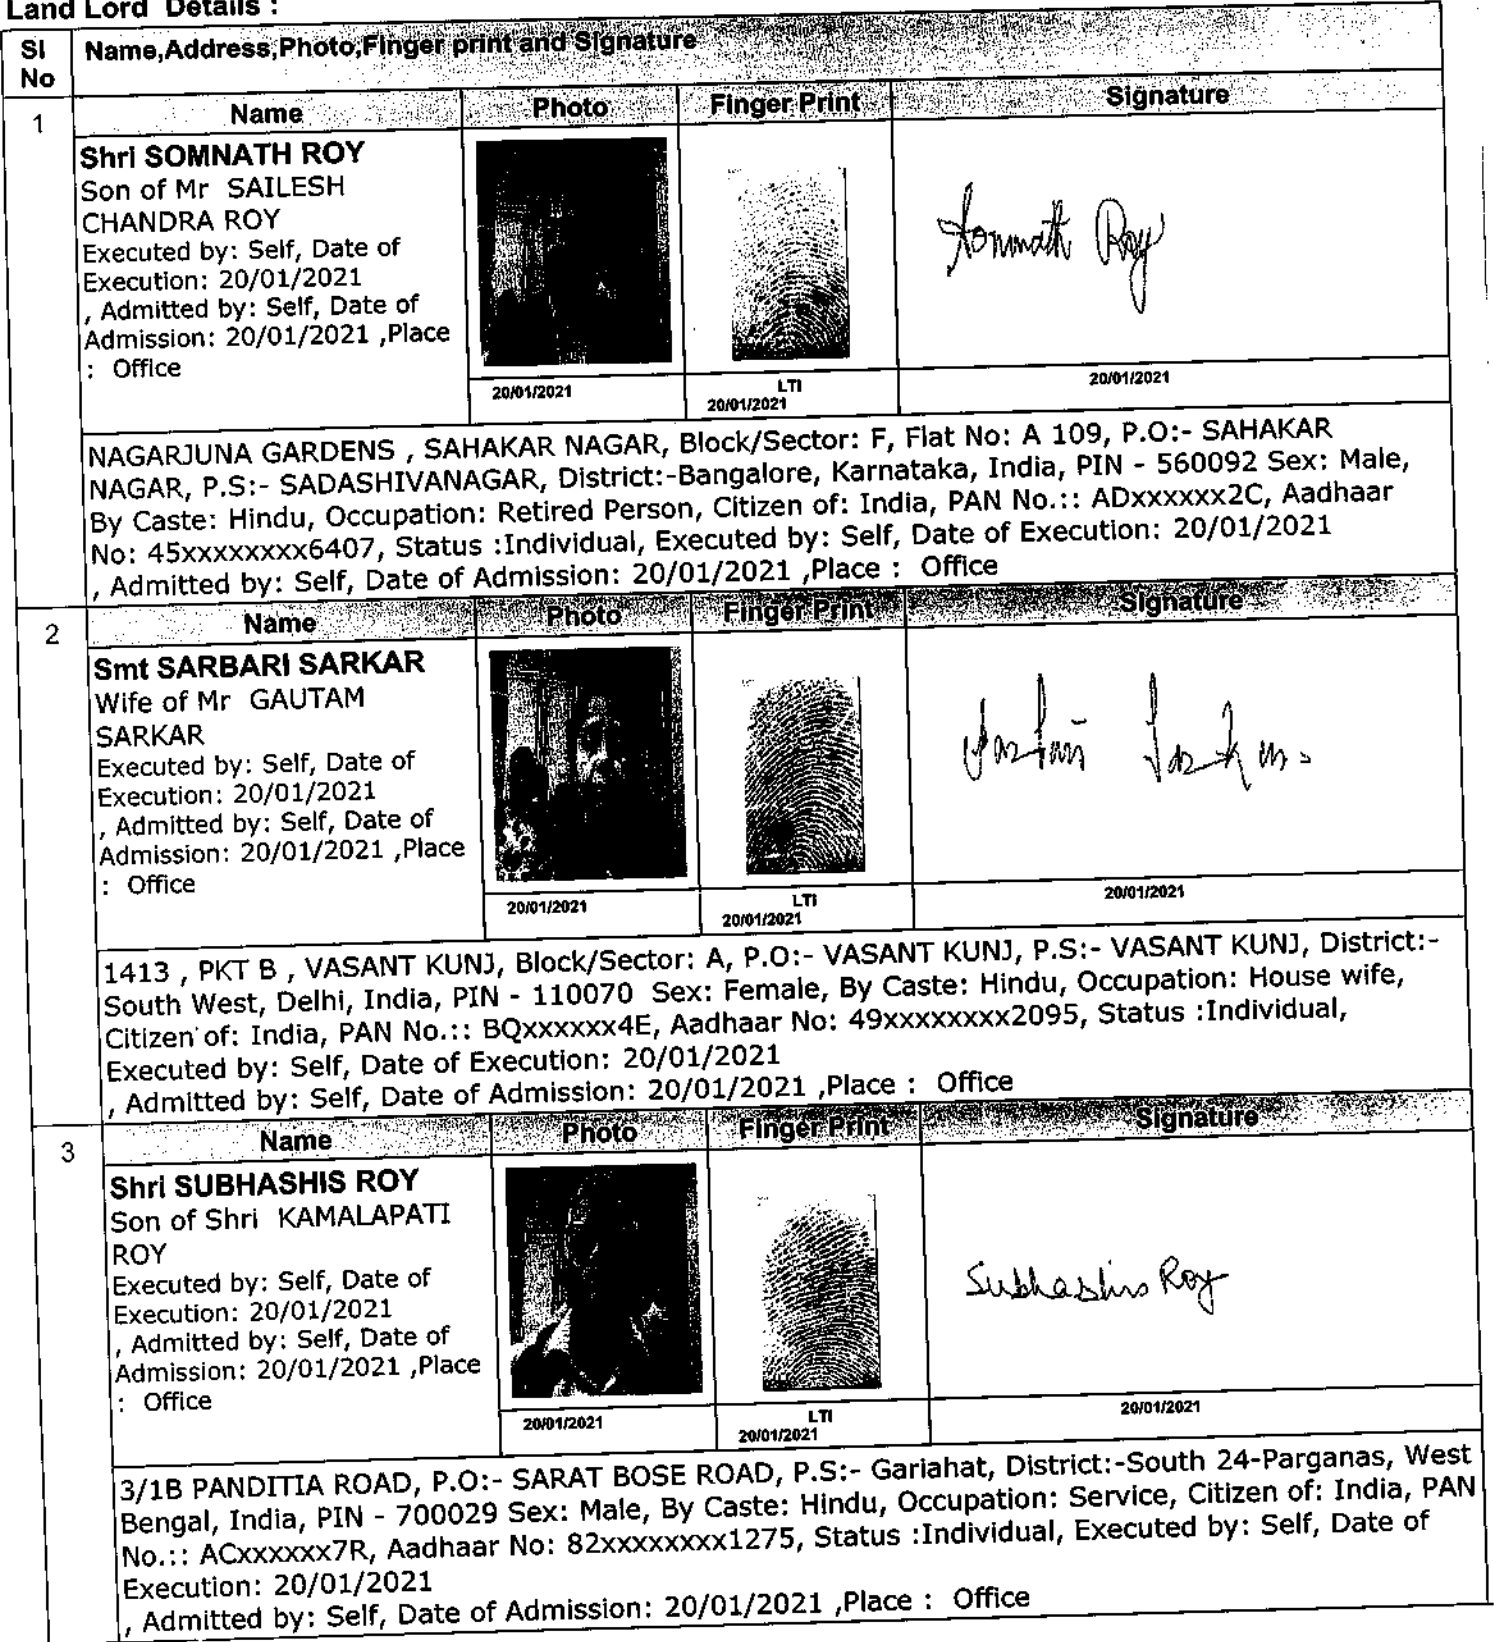 Land Lord Details :
Sl No
Name,Address,Photo,Finger print and Signature
1
Name
Photo
Finger Print
Signature
Shri SOMNATH ROY
Son of Mr SAILESH
CHANDRA ROY
Executed by: Self, Date of
Execution: 20/01/2021
, Admitted by: Self, Date of
Admission: 20/01/2021 ,Place
: Office
Somnath Roy
20/01/2021
LTI
20/01/2021
20/01/2021
NAGARJUNA GARDENS , SAHAKAR NAGAR, Block/Sector: F, Flat No: A 109, P.O:- SAHAKAR
NAGAR, P.S:- SADASHIVANAGAR, District:-Bangalore, Karnataka, India, PIN - 560092 Sex: Male,
By Caste: Hindu, Occupation: Retired Person, Citizen of: India, PAN No.:: ADxxxxxx2C, Aadhaar
No: 45xxxxxxxx6407, Status :Individual, Executed by: Self, Date of Execution: 20/01/2021
, Admitted by: Self, Date of Admission: 20/01/2021 ,Place : Office
2
Name
Photo
Finger Print
Signature
Smt SARBARI SARKAR
Wife of Mr GAUTAM
SARKAR
Executed by: Self, Date of
Execution: 20/01/2021
, Admitted by: Self, Date of
Admission: 20/01/2021 ,Place
: Office
20/01/2021
LTI
20/01/2021
20/01/2021
1413 , PKT B , VASANT KUNJ, Block/Sector: A, P.O:- VASANT KUNJ, P.S:- VASANT KUNJ, District:-
South West, Delhi, India, PIN - 110070 Sex: Female, By Caste: Hindu, Occupation: House wife,
Citizen of: India, PAN No.:: BQxxxxxx4E, Aadhaar No: 49xxxxxxxx2095, Status :Individual,
Executed by: Self, Date of Execution: 20/01/2021
, Admitted by: Self, Date of Admission: 20/01/2021 ,Place : Office
3
Name
Photo
Finger Print
Signature
Shri SUBHASHIS ROY
Son of Shri KAMALAPATI
ROY
Executed by: Self, Date of
Execution: 20/01/2021
, Admitted by: Self, Date of
Admission: 20/01/2021 ,Place
: Office
Subhashis Roy
20/01/2021
LTI
20/01/2021
20/01/2021
3/1B PANDITIA ROAD, P.O:- SARAT BOSE ROAD, P.S:- Gariahat, District:-South 24-Parganas, West
Bengal, India, PIN - 700029 Sex: Male, By Caste: Hindu, Occupation: Service, Citizen of: India, PAN
No.:: ACxxxxxx7R, Aadhaar No: 82xxxxxxxx1275, Status :Individual, Executed by: Self, Date of
Execution: 20/01/2021
, Admitted by: Self, Date of Admission: 20/01/2021 ,Place : Office